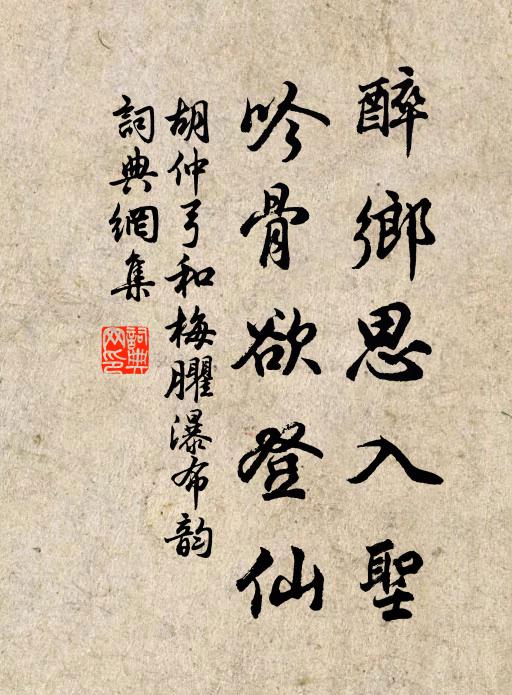 醉鄉思入聖
吟骨欲登仙
胡仲弓和梅臞瀑布韵
詞典網集
詞典網印